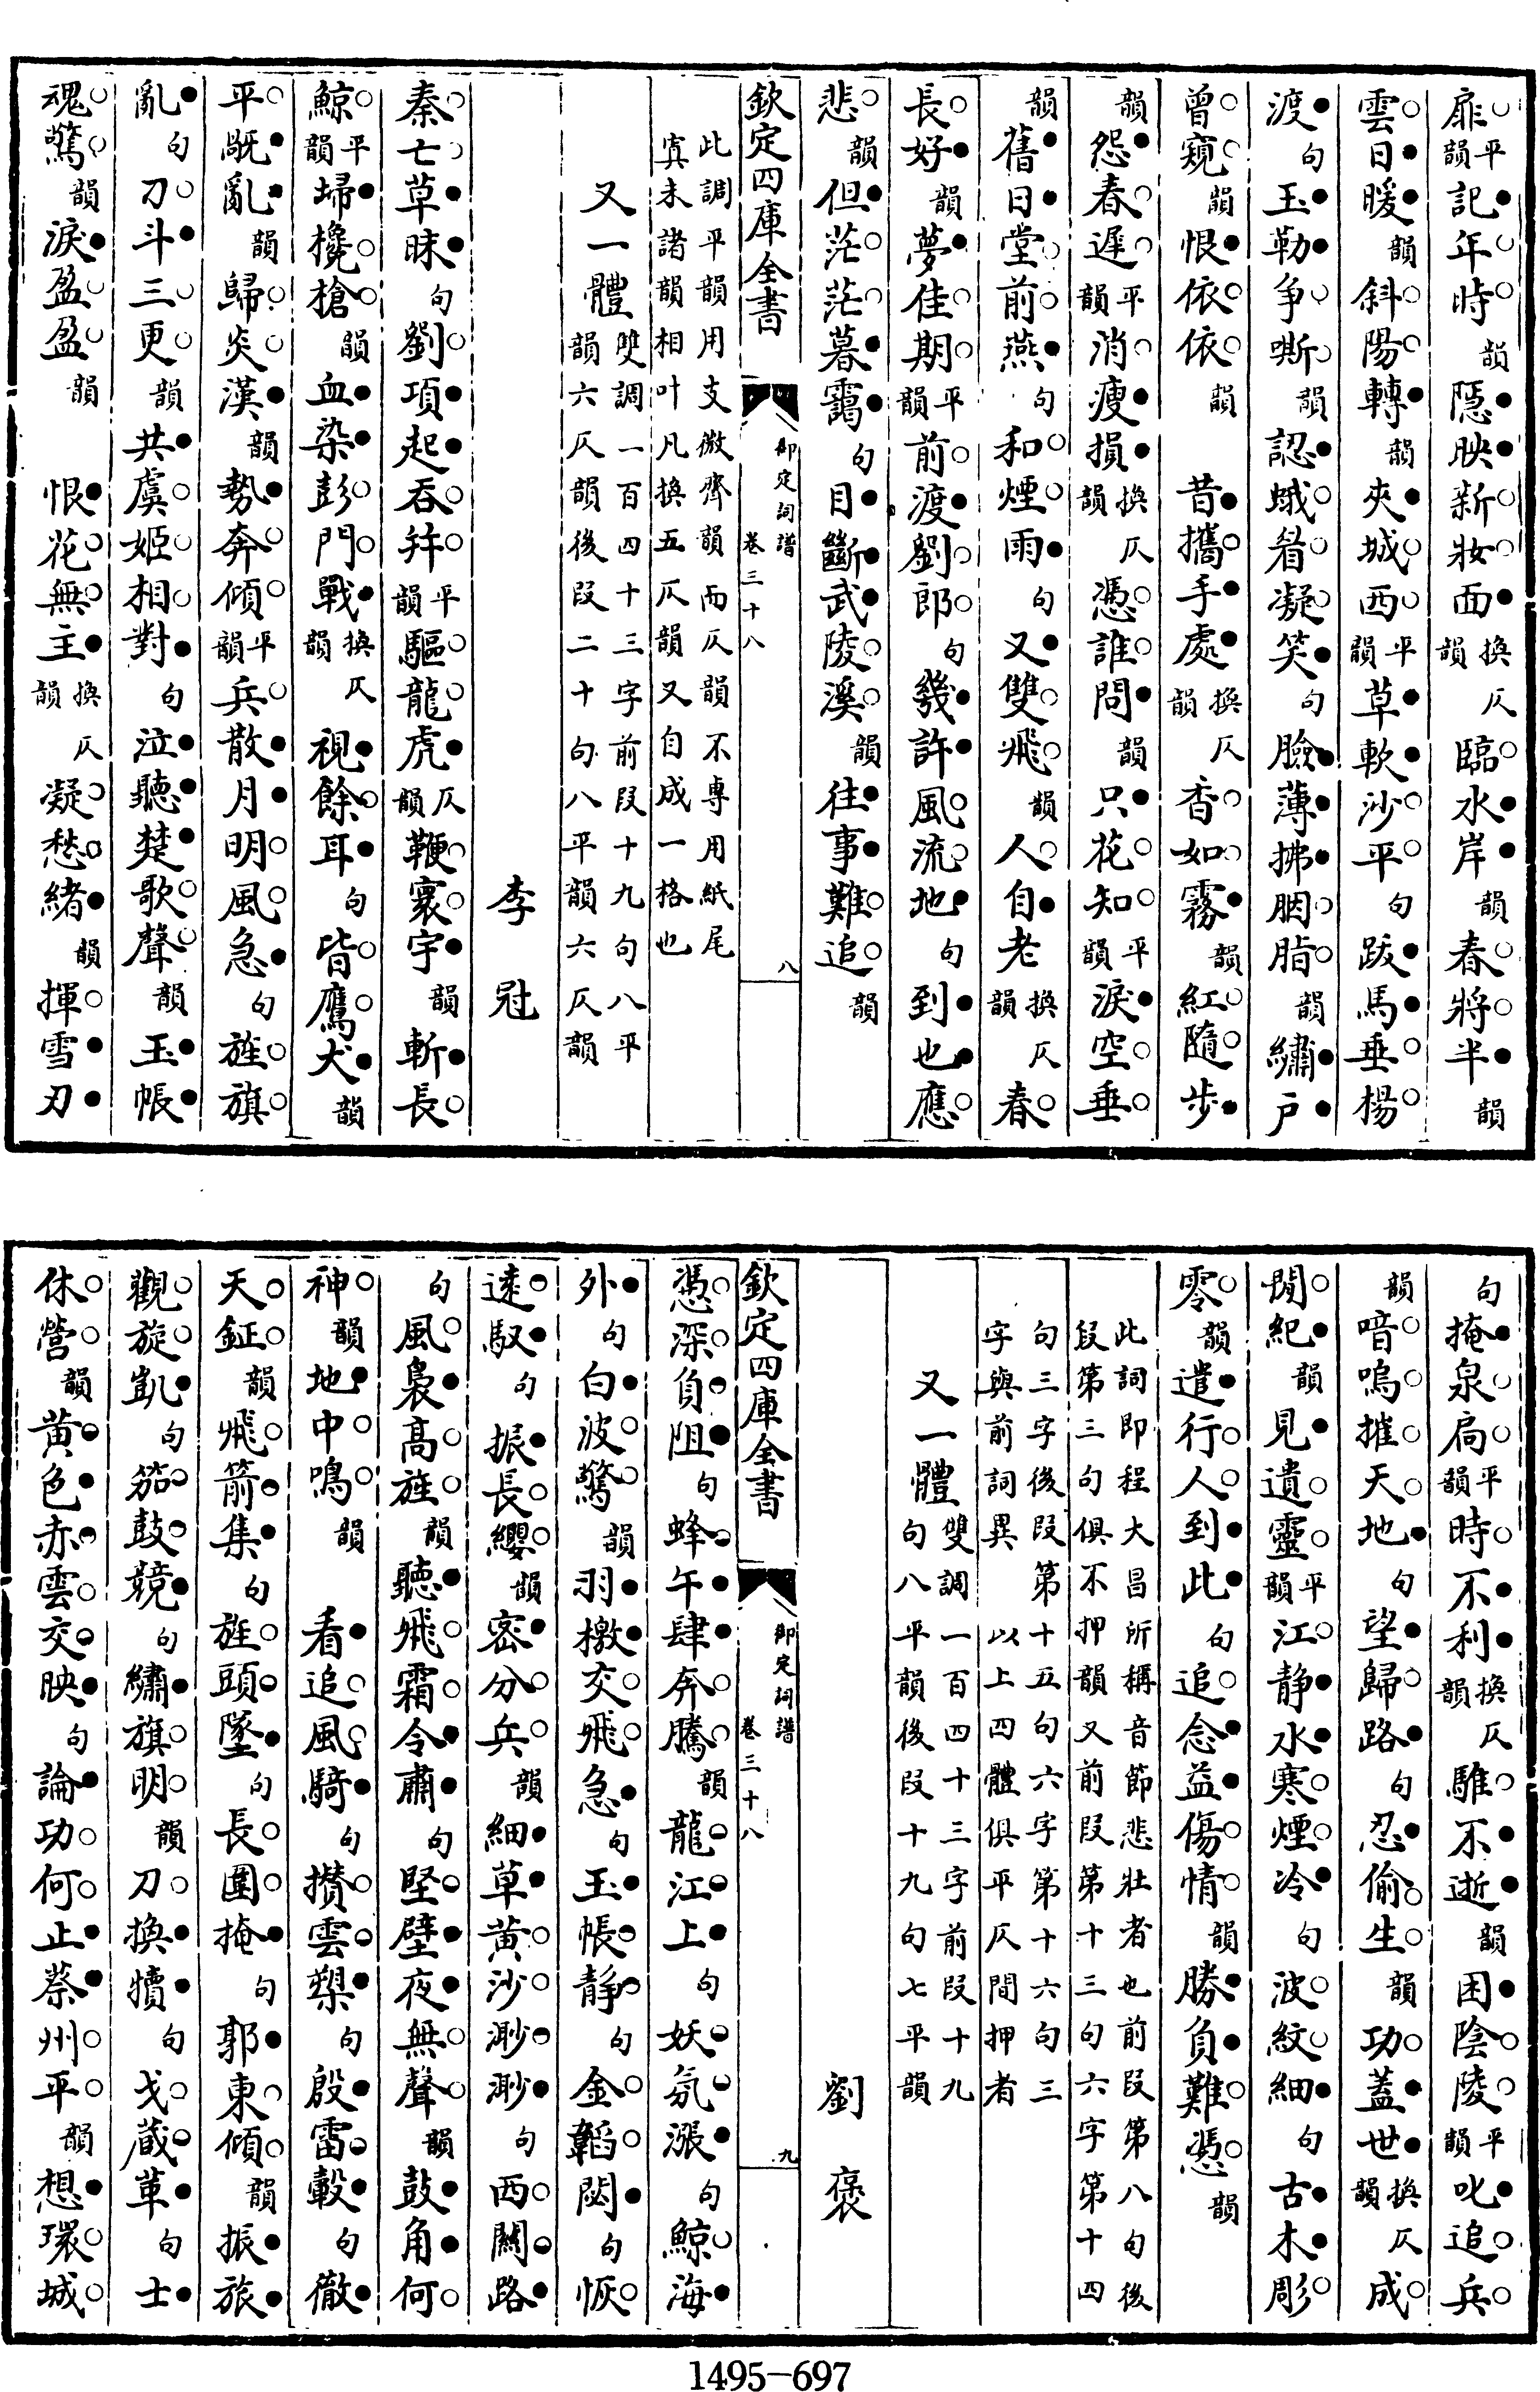 扉平韻記年時韻隱映新妝面換仄韻臨水岸韻春將半韻
雲日暖韻斜陽轉韻夾城西平韻草軟沙平句跋馬垂楊
渡句玉勒爭嘶韻認蛾眉凝笑句臉薄拂胭脂韻繡戶
曾窺韻恨依依韻　昔攜手處換仄韻香如霧韻紅隨步
韻怨春遲平韻消瘦損換仄韻憑誰問韻只花知平韻淚空垂
韻舊日堂前燕句和煙雨句又雙飛韻人自老換仄韻春
長好韻夢佳期平韻前渡劉郎句幾許風流地句到也應
悲韻但茫茫暮靄句目斷武陵溪韻往事難追韻
欽定四庫全書　御定詞譜卷三十八　八
此調平韻用支微齊韻而仄韻不專用紙尾
寘未諸韻相叶凡換五仄韻又自成一格也
又一體雙調一百四十三字前段十九句八平
韻六仄韻後段二十句八平韻六仄韻
李冠
秦亡草昧句劉項起吞并平韻驅龍虎仄韻鞭寰宇韻斬長
鯨平韻埽欃槍韻血染彭門戰換仄韻視餘耳句皆鷹犬韻
平旣亂韻歸炎漢韻勢奔傾平韻兵散月明風急句旌旗
亂句刀斗三更韻共虞姬相對句泣聽楚歌聲韻玉帳
魂驚韻淚盈盈韻　恨花無主換仄韻凝愁緒韻揮雪刃
句掩泉扃平韻時不利換仄韻騅不逝韻困陰陵平韻叱追兵
韻喑嗚摧天地句望歸路句忍偷生韻功蓋世換仄韻成
閒紀韻見遺靈平韻江靜水寒煙冷句波紋細句古木彫
零韻遣行人到此句追念益傷情韻勝負難憑韻
此詞即程大昌所稱音節悲壯者也前段第八句後
段第三句俱不押韻又前段第十三句六字第十四
句三字後段第十五句六字第十六句三
字與前詞異　以上四體俱平仄間押者
又一體雙調一百四十三字前段十九
句八平韻後段十九句七平韻
劉褒
欽定四庫全書　御定詞譜卷三十八　九
憑深負阻句蜂午肆奔騰韻龍江上句妖氛漲句鯨海
外句白波驚韻羽檄交飛急句玉帳靜句金韜閟句恢
遠馭句振長纓韻密分兵韻細草黃沙渺渺句西關路
句風裊高旌韻聽飛霜令肅句堅壁夜無聲韻鼓角何
神韻地中鳴韻　看追風騎句攢雲槊句殷雷轂句徹
天鉦韻飛箭集句旌頭墜句長圍掩句郭東傾韻振旅
觀旋凱句笳鼓競句繡旗明韻刀換犢句戈藏革句士
休營韻黃色赤雲交映句論功何止蔡州平韻想環城
1495-697